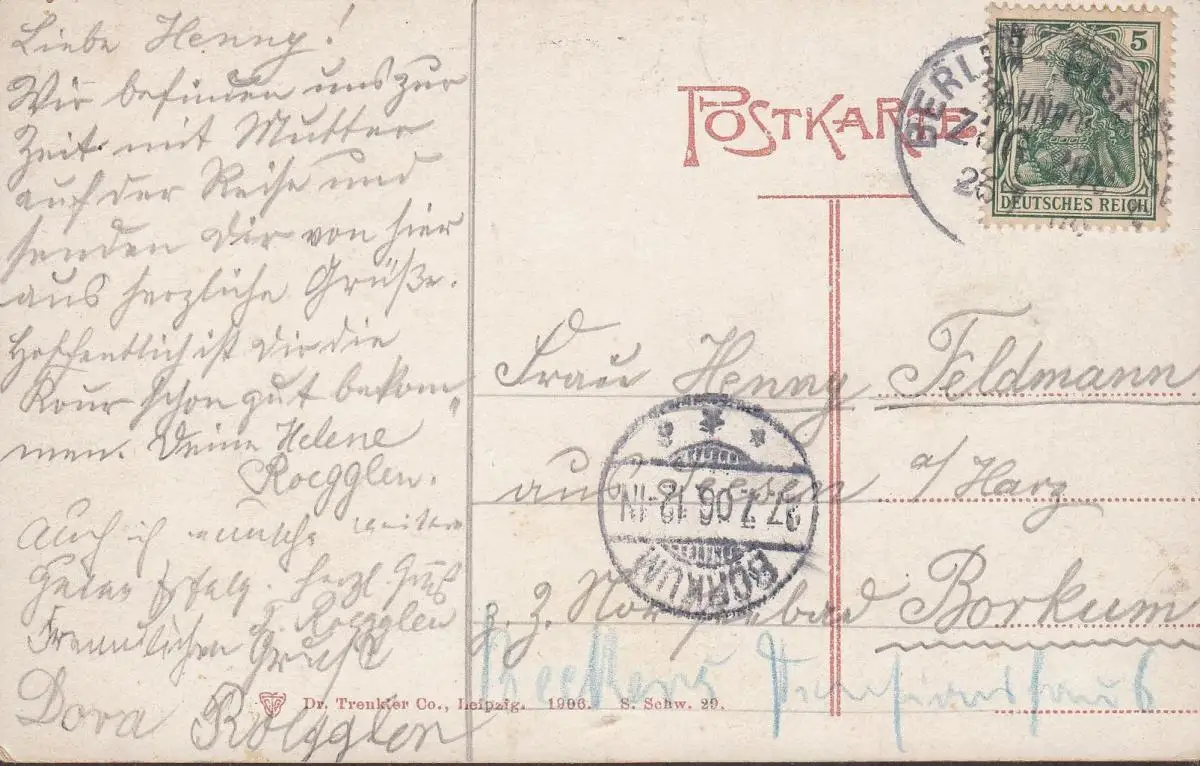 Liebe Henny!
Wir befinden uns zur
Zeit mit Mutter
auf der Reise und
senden Dir von hier
aus herzliche Grüße.
Hoffentlich ist Dir die
Kour schon gut bekom„
men. Deine Helene
Roegglen.
Auch ich wünsche weiter
Guten Erfolg. Herzl Gruß
Roegglen
Freundlichen Gruß
Dora Roegglen
POSTKARTE
BERLIN
5 5
DEUTSCHES REICH
Frau Henny Feldmann
aus Seesen a/ Harz
z. Z. Nordseebad Borkum
BORKUM
27.7.06.12-1N
Pensionshaus
Dr. Trenkler Co., Leipzig. 1906. S. Schw. 29.